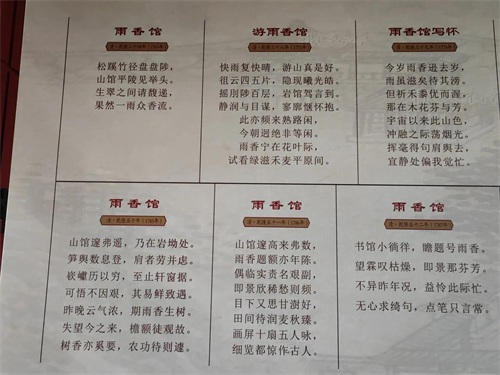 雨香馆
清·乾隆二十四年（1759年）
松蹊竹径盘盘陟，
山馆平陵见举头。
生翠之间请馥递，
果然一雨众香流。
游雨香馆
快雨复快晴，游山真是好。
徂云四五片，隐现曦光皓。
摇刖陟百层，岩馆驾言到。
静润与目谋，寥廓惬怀抱。
此亦频来熟路闲，
今朝迥绝非等闲。
雨香宁在花叶际，
试看绿滋禾麦平原间。
雨香馆写怀
今岁雨香逊去岁，
雨虽滋矣待其滂。
但祈禾黍优而渥，
那在木花芬与芳。
宇宙以来此山色，
冲融之际荡烟光。
挥毫得句肩舆去，
宜静处偏我觉忙。
雨香馆
清·乾隆五十年（1785年）
山馆邃弗遥，乃在岩坳处。
笋舆数息登，肩者劳并虑。
嵚巇历以穷，至止轩窗据。
可悟不因艰，其易鲜致遇。
昨晚云气浓，期雨香生树。
失望今之来，檐额徒观故。
树香亦奚要，农功待则遽。
雨香馆
清·乾隆五十一年（1786年）
山馆邃高来弗数，
雨香题额亦年陈。
偶临实责名艰副，
即景欣稀愁则频。
目下又思甘澍好，
田间待润麦秋臻。
画屏十扇五人咏，
细览都惊作古人。
雨香馆
清·乾隆五十二年（1787年）
书馆小徜徉，瞻题号雨香。
望霖叹枯燥，即景那芬芳。
不异昨年况，益怜此际忙。
无心求绮句，点笔只言常。